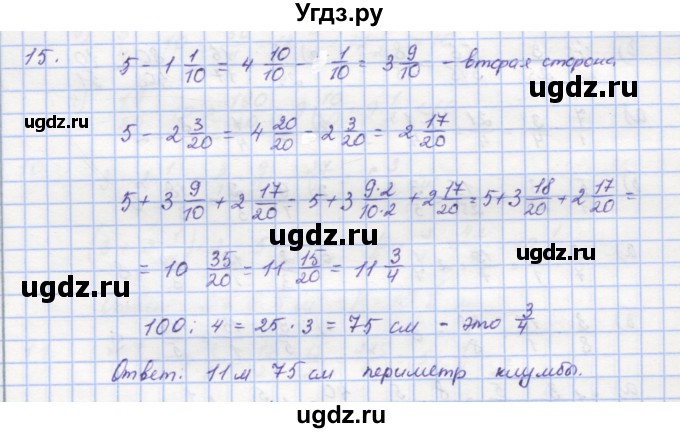 Угдз.ру
15. 5 - 1 1/10 = 4 10/10 - 1/10 = 3 9/10 - вторая сторона.
ugdz.ru
ugdz.ru
ugdz.ru
5 - 2 3/20 = 4 20/20 - 2 3/20 = 2 17/20
ugdz.ru
5 + 3 9/10 + 2 17/20 = 5 + 3 9·2/10·2 + 2 17/20 = 5 + 3 18/20 + 2 17/20 =
ugdz.ru
ugdz.ru
= 10 35/20 = 11 15/20 = 11 3/4
ugdz.ru
ugdz.ru
100 : 4 = 25 · 3 = 75 см - это 3/4
ugdz.ru
Ответ: 11 м 75 см периметр клумбы.
ugdz.ru